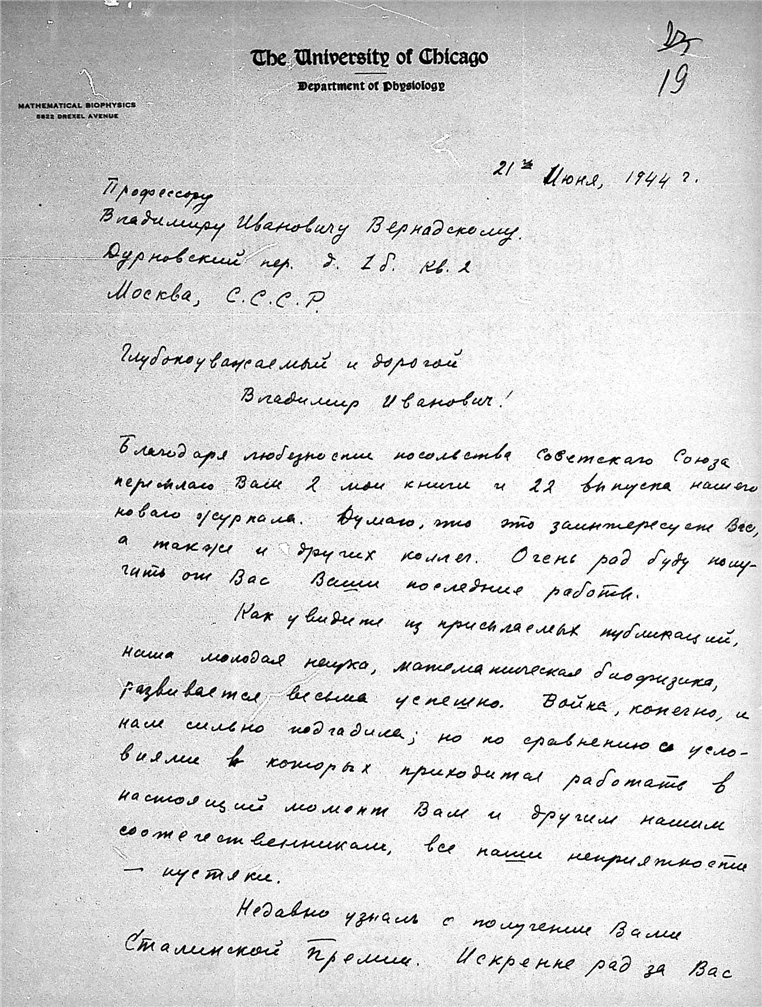 The University of Chicago
Department of Physiology
MATHEMATICAL BIOPHYSICS
5822 DREXEL AVENUE
19
21го Июня, 1944 г.
Профессору
Владимиру Ивановичу Вернадскому.
Дурновский пер. д. 1б. кв. 2
Москва, С.С.С.Р.
Глубокоуважаемый и дорогой
Владимир Иванович!
Благодаря любезности посольства Советскаго Союза
пересылаю Вам 2 мои книги и 22 выпуска нашего
новаго журнала. Думаю, что это заинтересует Вас,
а также и других коллег. Очень рад буду полу-
чить от Вас Ваши последние работы.
Как увидите из присылаемых публикаций,
наша молодая наука, математическая биофизика,
развивается весьма успешно. Война, конечно, и
нам сильно подгадила; но по сравнению с усло-
виями в которых приходится работать в
настоящий момент Вам и другим нашим
соотечественникам, все наши неприятности
— пустяки.
Недавно узналъ о получении Вами
Сталинской Премии. Искренне рад за Вас